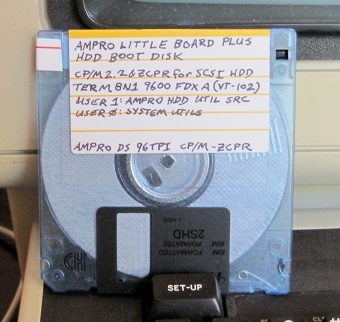 AMPRO LITTLE BOARD PLUS
HDD BOOT DISK
CP/M 2.2 & ZCPR for SCSI HDD
TERM 8N1 9600 FDX A (VT-102)
USER 1: AMPRO HDD UTIL SRC
USER 0: SYSTEM UTILS
AMPRO DS 96TPI CP/M-ZCPR
IBM FORMATTED
2SHD
IBM FORMATTED
HD
SET-UP